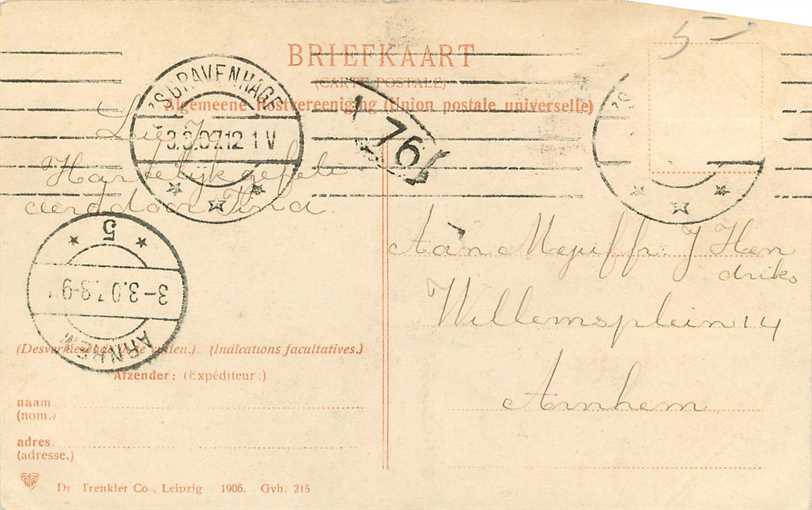 BRIEFKAART
(CARTE POSTALE)
Algemeene Postvereeniging (Union postale universelle)
5
'S GRAVENHAGE
3.3.07.12 1 V
'S
76
Hartelijk gefeli
ceerd door Tina
5
3-3.07.8-9
ARNHEM
Aan Mejuffr. J Hen
driks
Willemsplein 14
Arnhem
(Indications facultatives.)
Afzender: (Expéditeur.)
naam
(nom.)
adres.
(adresse.)
Dr Trenkler Co., Leipzig 1906. Gvh. 215